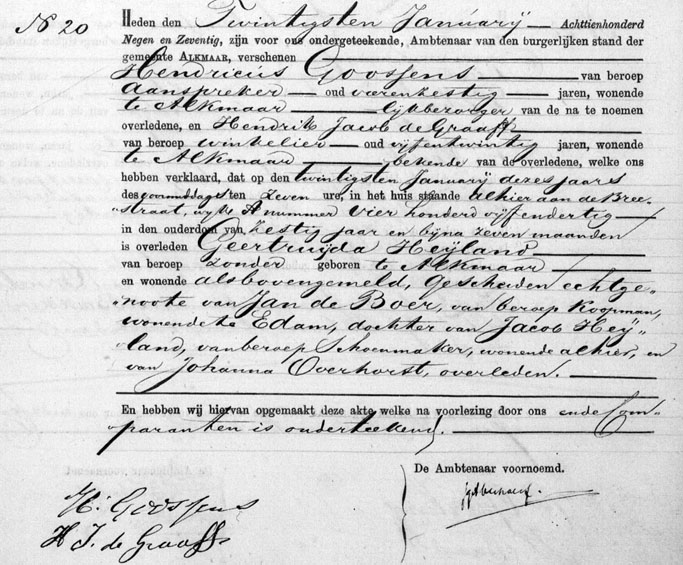 No 20
Heden den Twintigsten Januarij Achttienhonderd
Negen en Zeventig, zijn voor ons ondergeteekende, Ambtenaar van den burgerlijken stand der
gemeente ALKMAAR, verschenen
Hendricus Goossens van beroep
aanspreker oud vierenzestig jaren, wonende
te Alkmaar lijkbezorger van de na te noemen
overledene, en Hendrik Jacob de Graaff
van beroep winkelier oud vijfentwintig jaren, wonende
te Alkmaar bekende van de overledene, welke ons
hebben verklaard, dat op den twintigsten Januarij dezes jaars
des voormiddags ten zeven ure, in het huis staande alhier aan de Bree-
straat, wijk A nummer vier honderd vijfendertig
in den ouderdom van zestig jaar en bijna zeven maanden
is overleden Geertruijda Heijland
van beroep zonder geboren te Alkmaar
en wonende als bovengemeld, gescheiden echtge-
noote van Jan de Boer, van beroep koopman,
wonende te Edam, dochter van Jacob Heij-
land, van beroep schoenmaker, wonende alhier, en
van Johanna Overhorst, overleden.
En hebben wij hiervan opgemaakt deze akte welke na voorlezing door ons en de Com-
paranten is onderteekend.
De Ambtenaar voornoemd.
H. Goossens
H J. de Graaff